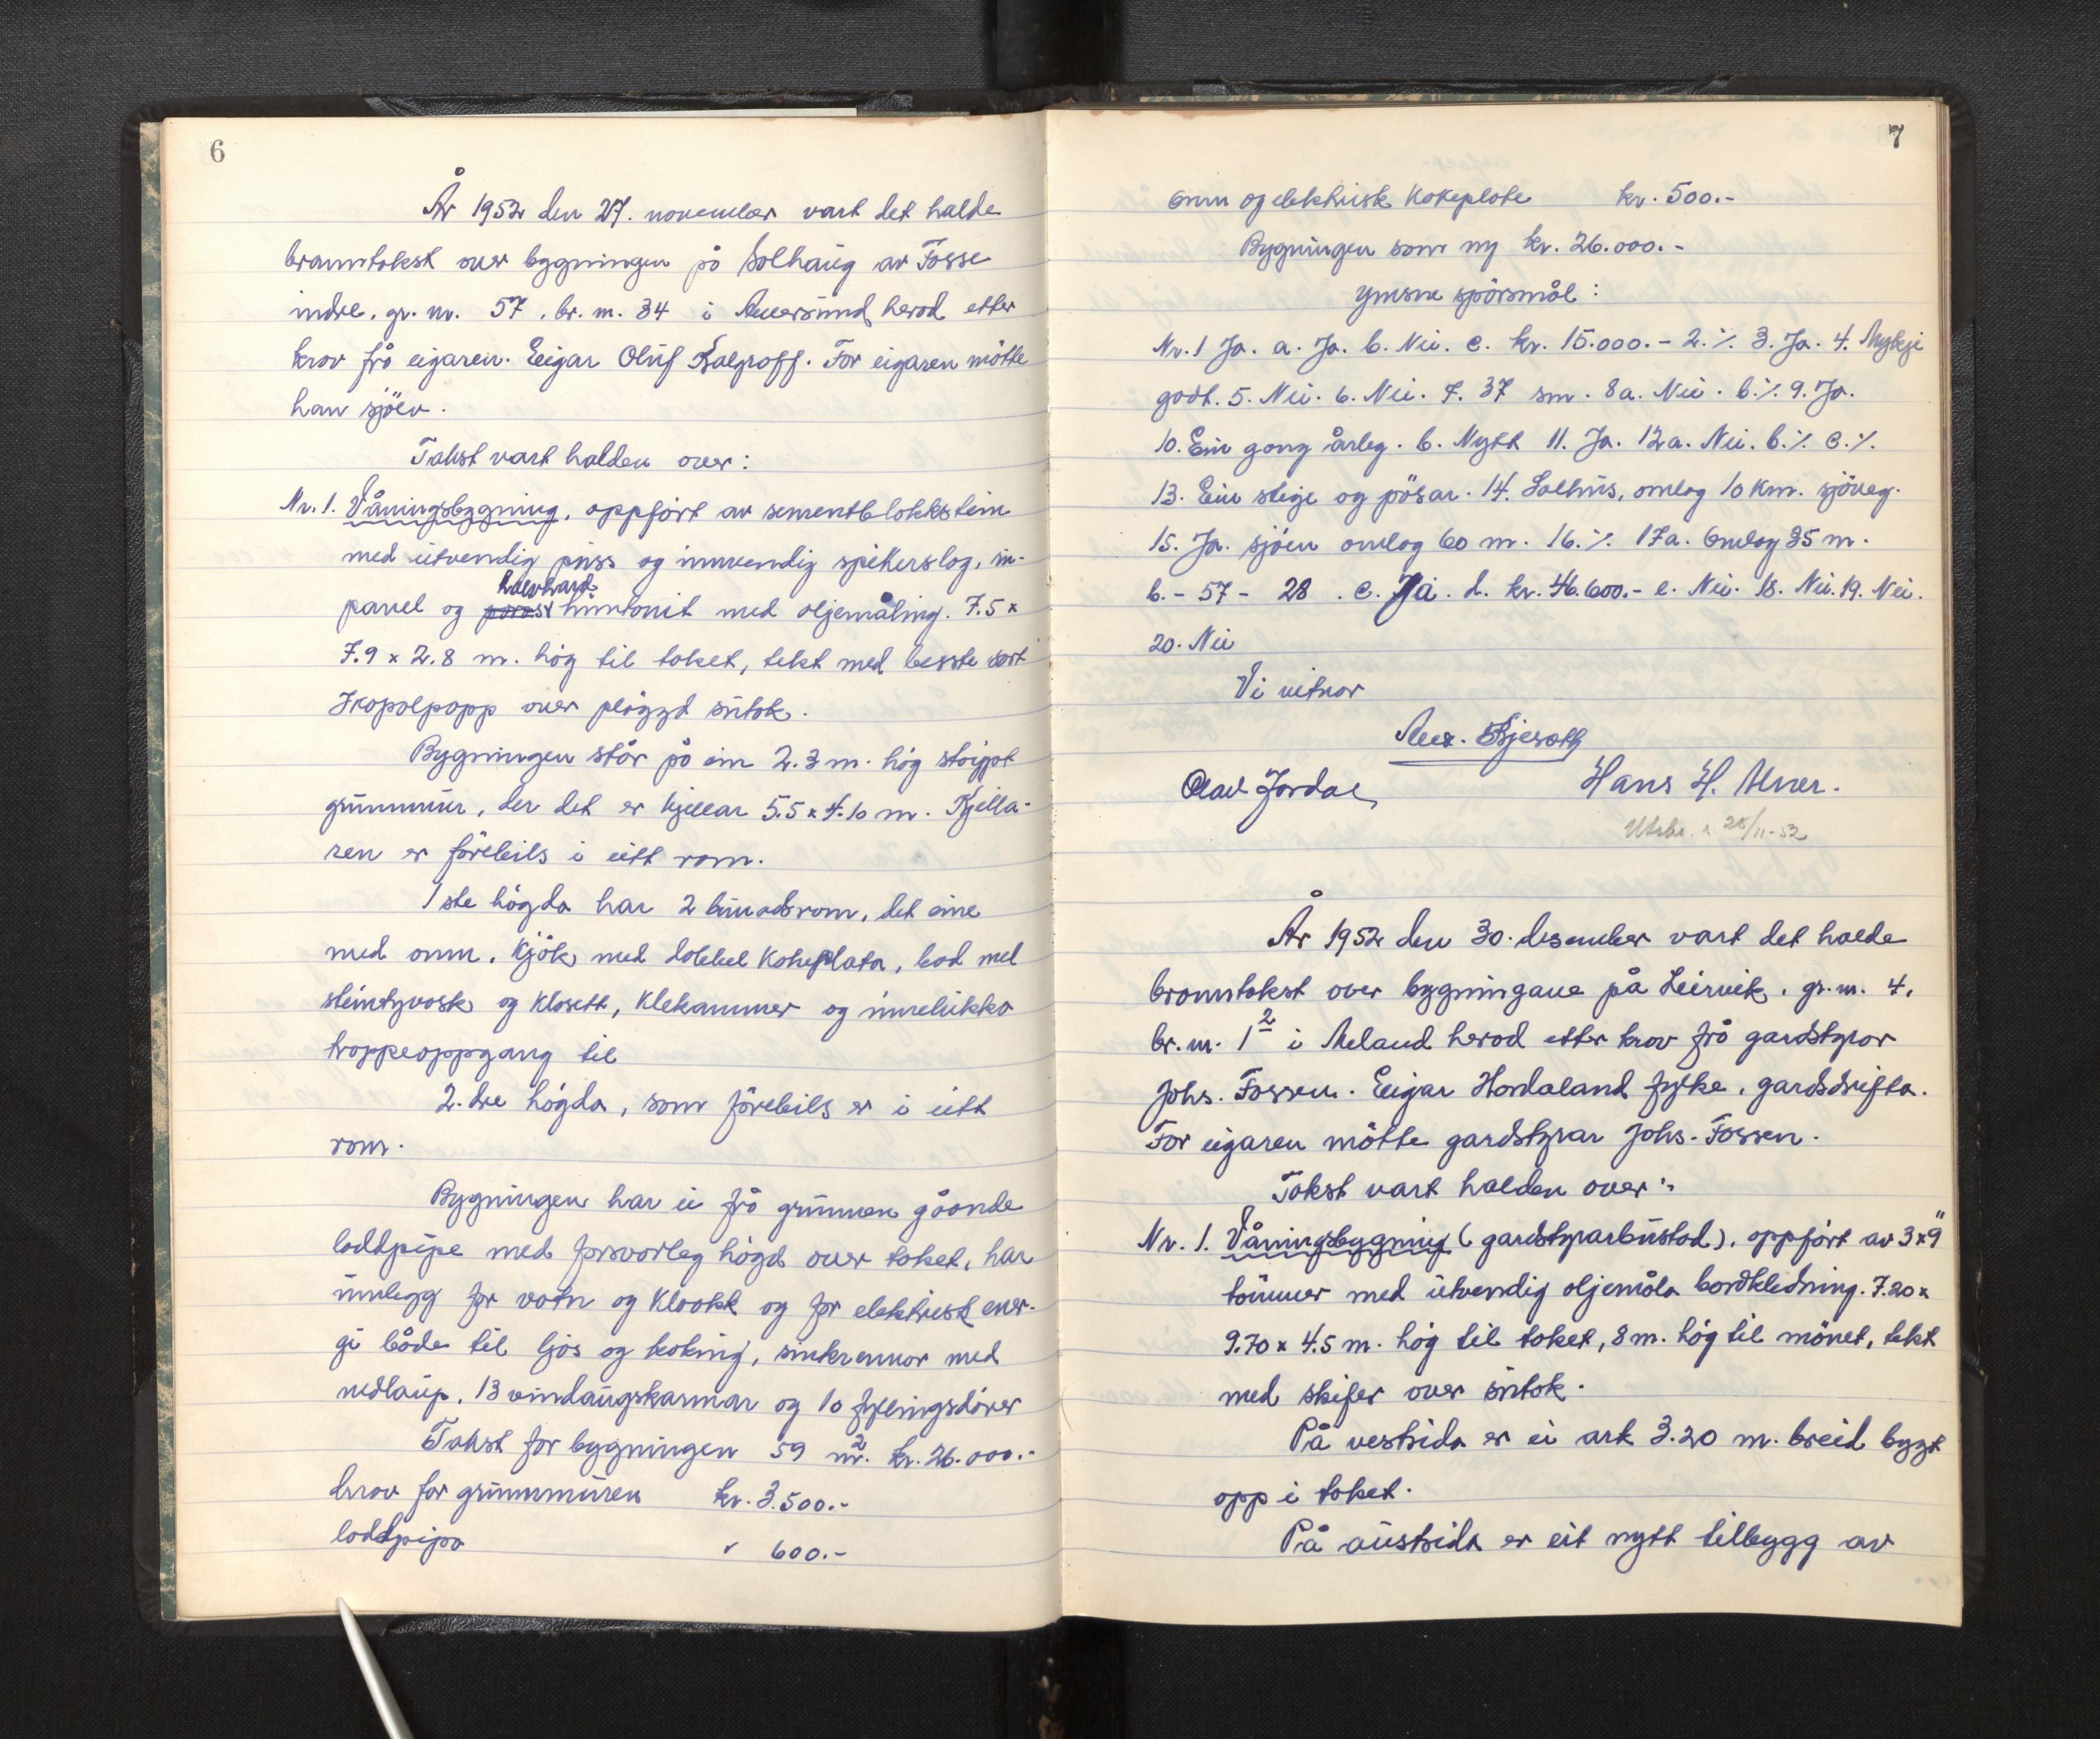 6
År 1952 den 27. november vart det halde
branntakst over bygningen på Solhaug av Fosse
indre, gr. nr. 57, br. nr. 34 i Alversund herad etter
krav frå eigaren. Eigar Oluf Kalgraff. For eigaren møtte
han sjølv.
Takst vart halden over:
Nr. 1. Våningsbygning, oppført av sementblokkstein
med utvendig puss og innvendig spikerslag, in-
halvhard
panel og porøst huntonit med oljemåling. 7.5 x
7.9 x 2.8 m. høg til taket, tekt med beste sort
Icopalpapp over pløgd sutak.
Bygningen står på ein 2.3 m. høg støypt
grunnmur, der det er kjellar 5.5 x 4.10 m. Kjella-
ren er førebils i eitt rom.
1ste høgda har 2 bunadsrom, det eine
med omn, kjøk med dobbel kokeplata, bad med
steintyvask og klosett, klekammer og innelukka
troppeoppgang til
2. dre høgda, som førebils er i eitt
rom.
Bygningen har ei frå grunnen gåande
loddpipe med forsvarleg høgd over taket, har
innlegg for vatn og kloakk og for elektrisk ener-
gi både til ljos og koking, sinkrennor med
nedlaup, 13 vindaugskarmar og 10 fyllingsdører
Takst for bygningen 59 m². kr. 26.000.-
herav for grunnmuren kr. 3.500.-
loddpipa " 600.-
7
omn og elektrisk kokeplate kr. 500.-
Bygningen som ny kr. 26.000.-
Ymsne spørsmål:
Nr. 1 Ja. a. Ja. b. Nei. c. kr. 15.000.- 2. ٪ 3. Ja. 4. Mykje
godt. 5. Nei. 6. Nei. 7. 37 sm. 8a. Nei. b. ٪ 9. Ja.
10. Ein gong årleg. b. Nytt 11. Ja. 12a. Nei. b. ٪ c. ٪.
13. Ein stige og pøsar. 14. Salhus, omlag 10 km. sjøveg.
15. Ja. sjøen omlag 60 m. 16. ٪. 17a. Omlag 35 m.
b. - 57 - 28. c. Nei. d. kr. 46.600.- e. Nei. 18. Nei. 19. Nei.
20. Nei
Vi vitnar
Alex. Bjerseth
Olav Jordal Hans H. Alver.
Utskr. 28/11-52
År 1952 den 30. desember vart det halde
branntakst over bygningane på Leirvik, gr. nr. 4,
br. nr. 1 2 i Meland herad etter krav frå gardstyrar
Johs. Fossen. Eigar Hordaland fylke, gardsdrifta.
For eigaren møtte gardstyrar Johs. Fossen.
Takst vart halden over:
Nr. 1. Våningsbygning (gardstyrarbustad), oppført av 3x9"
tømmer med utvendig oljemåla bordkledning. 7.20 x
9.70 x 4.5 m. høg til taket, 8 m. høg til mønet, tekt
med skifer over sutak.
På vestsida er ei ark 3.20 m. breid bygt
opp i taket.
På austsida er eit nytt tilbygg av